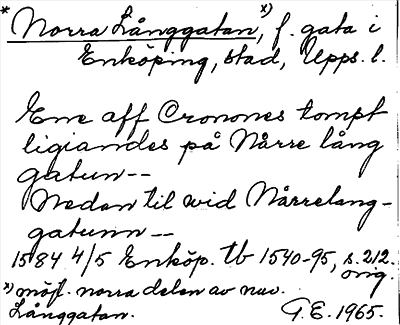 * Norra Långgatan x), f. gata i
Enköping, stad, Upps. l.
Ene aff Cronones tompt
ligiandes på Nårre lång
gatun--
Nedan til wid Nårrelang-
gatunn--
1584 4/5 Enköp. tb 1540-95, s. 212.
orig.
x) möjl. norra delen av nuv.
Långgatan. G.E. 1965.